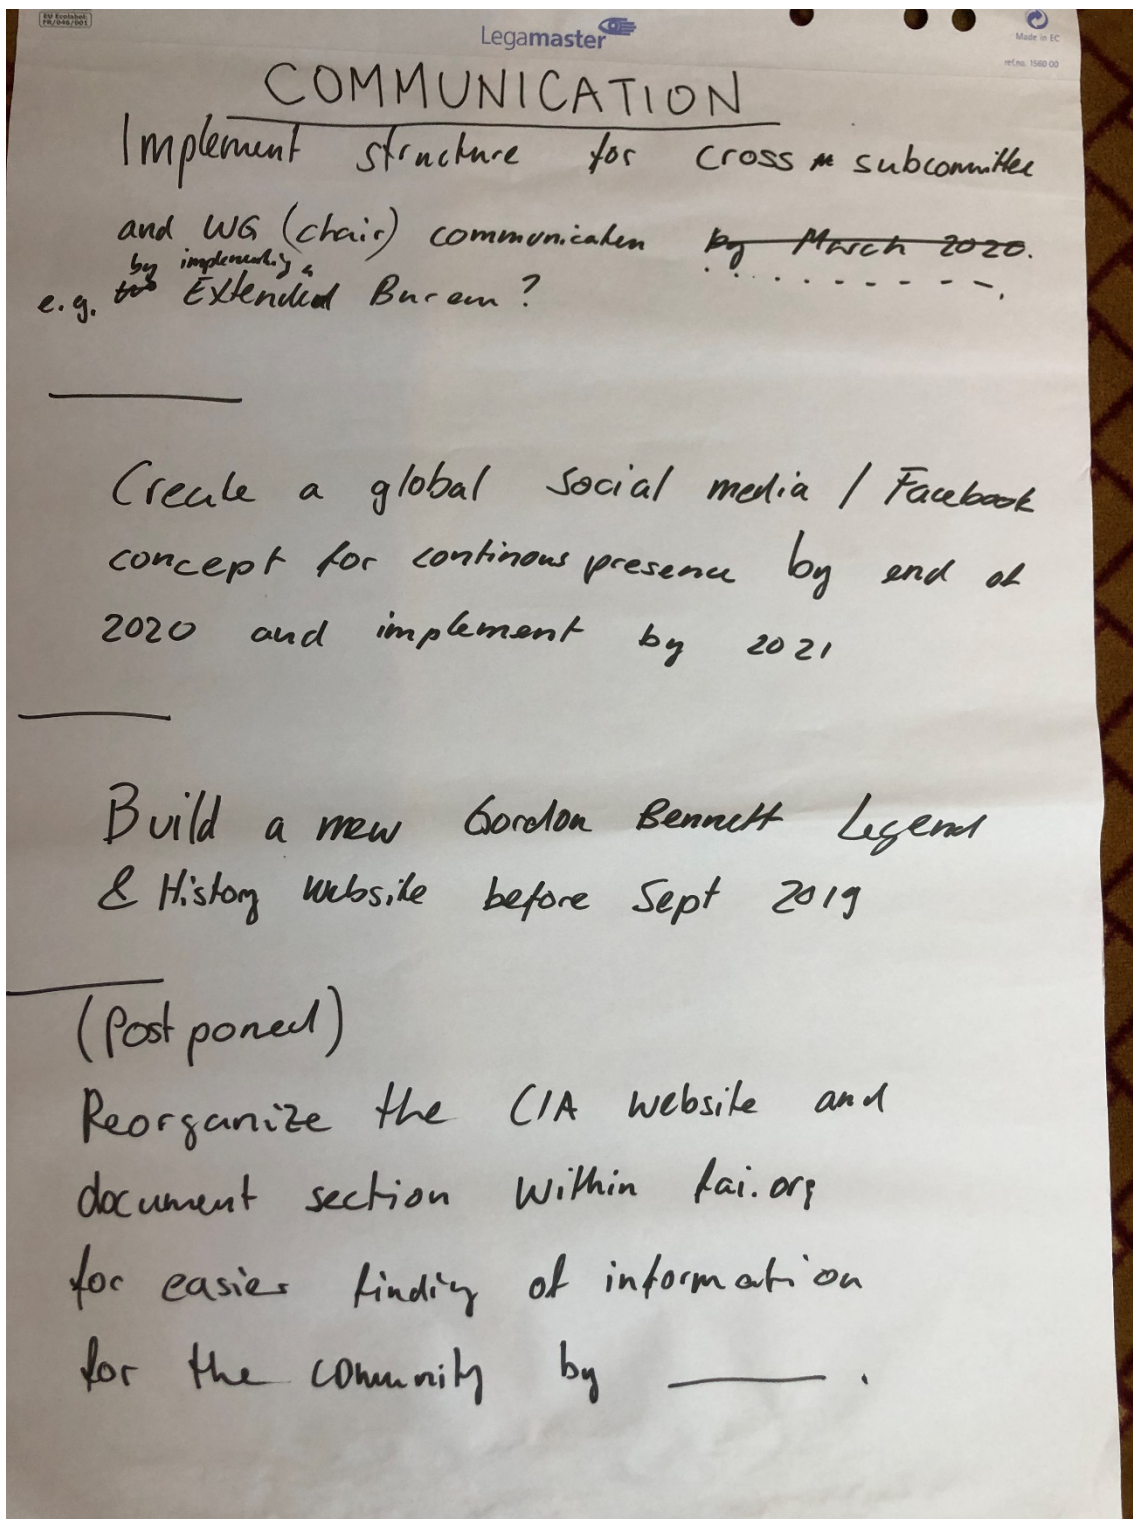 EU Ecolabel
FR/046/001
Legamaster
Made in EC
ref.no. 1560 00
COMMUNICATION
Implement structure for cross subcommittee
and WG (chair) communication by March 2020.
by implementing a
e.g. Extended Bureau?
Create a global social media / Facebook
concept for continous presence by end of
2020 and implement by 2021
Build a new Gordon Bennett Legend
& History website before Sept 2019
(Postponed)
Reorganize the CIA website and
document section within fai.org
for easier finding of information
for the community by ______ .